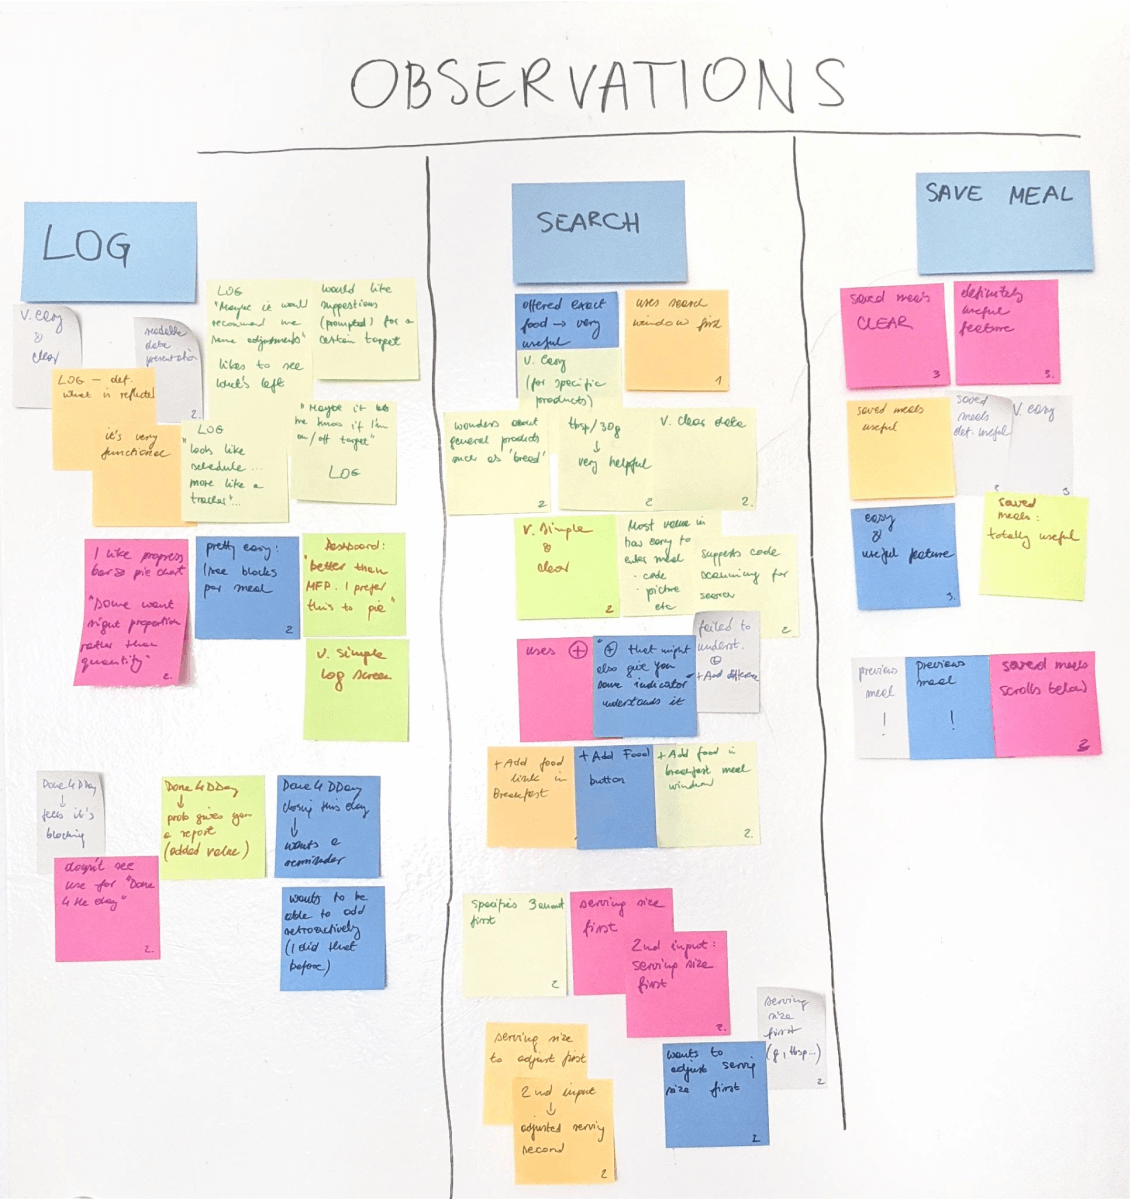 OBSERVATIONS
LOG
V. easy
&
clear
readable
data
presentation
2.
LOG
"Maybe it would
recommend me
some adjustments"
likes to see
what's left
would like
suggestions
(prompted) for a
certain target
LOG – def.
what is
it's very
functional
LOG
"looks like
schedule...
more like a
tracker"...
"Maybe it lets
me know if I'm
on/off target"
LOG
I like progress
bar & pie chart
"Some want
right proportion
rather than
quantity"
2.
pretty easy:
I see blocks
per meal
2
Dashboard:
"better than
MFP. I prefer
this to pie"
v. simple
log screen
Done 4 DDay
↓
feels it's
blocking
doesn't see
use for "Done
4 the day"
2.
Done 4 DDay
↓
prob gives you
a report
(added value)
Done 4 DDay
closing this day
↓
wants a
reminder
wants to be
able to add
retroactively
(I did that
before)
SEARCH
offered exact
food → very
useful
uses search
window first
1
V. easy
(for specific
products)
wonders about
general products
such as 'bread'
2
tbsp/30g
↓
very helpful
2
V. clear data
2.
V. simple
&
clear
2
Most value in
how easy to
enter meal
- code
- picture
etc
suggests code
scanning for
search
2
uses ⊕
"⊕ that might
also give you
some indicator
understands it
failed to
underst.
⊕
+Add difference
+Add food
link in
Breakfast
+Add Food
button
+Add food in
breakfast meal
window
2.
specifies amount
first
2
serving size
first
2nd input:
serving size
first
2.
serving
size
first
(g, tbsp...)
2
serving size
to adjust first
2nd input
↓
adjusted serving
second
2
wants to
adjust serving
size first
2
SAVE MEAL
saved meals
CLEAR
3
definitely
useful
feature
3.
saved meals
useful
saved
meals
def. useful
V. easy
3
easy
&
useful feature
3.
saved
meals:
totally useful
previous
meal
!
previous
meal
!
saved meals
scrolls below
2